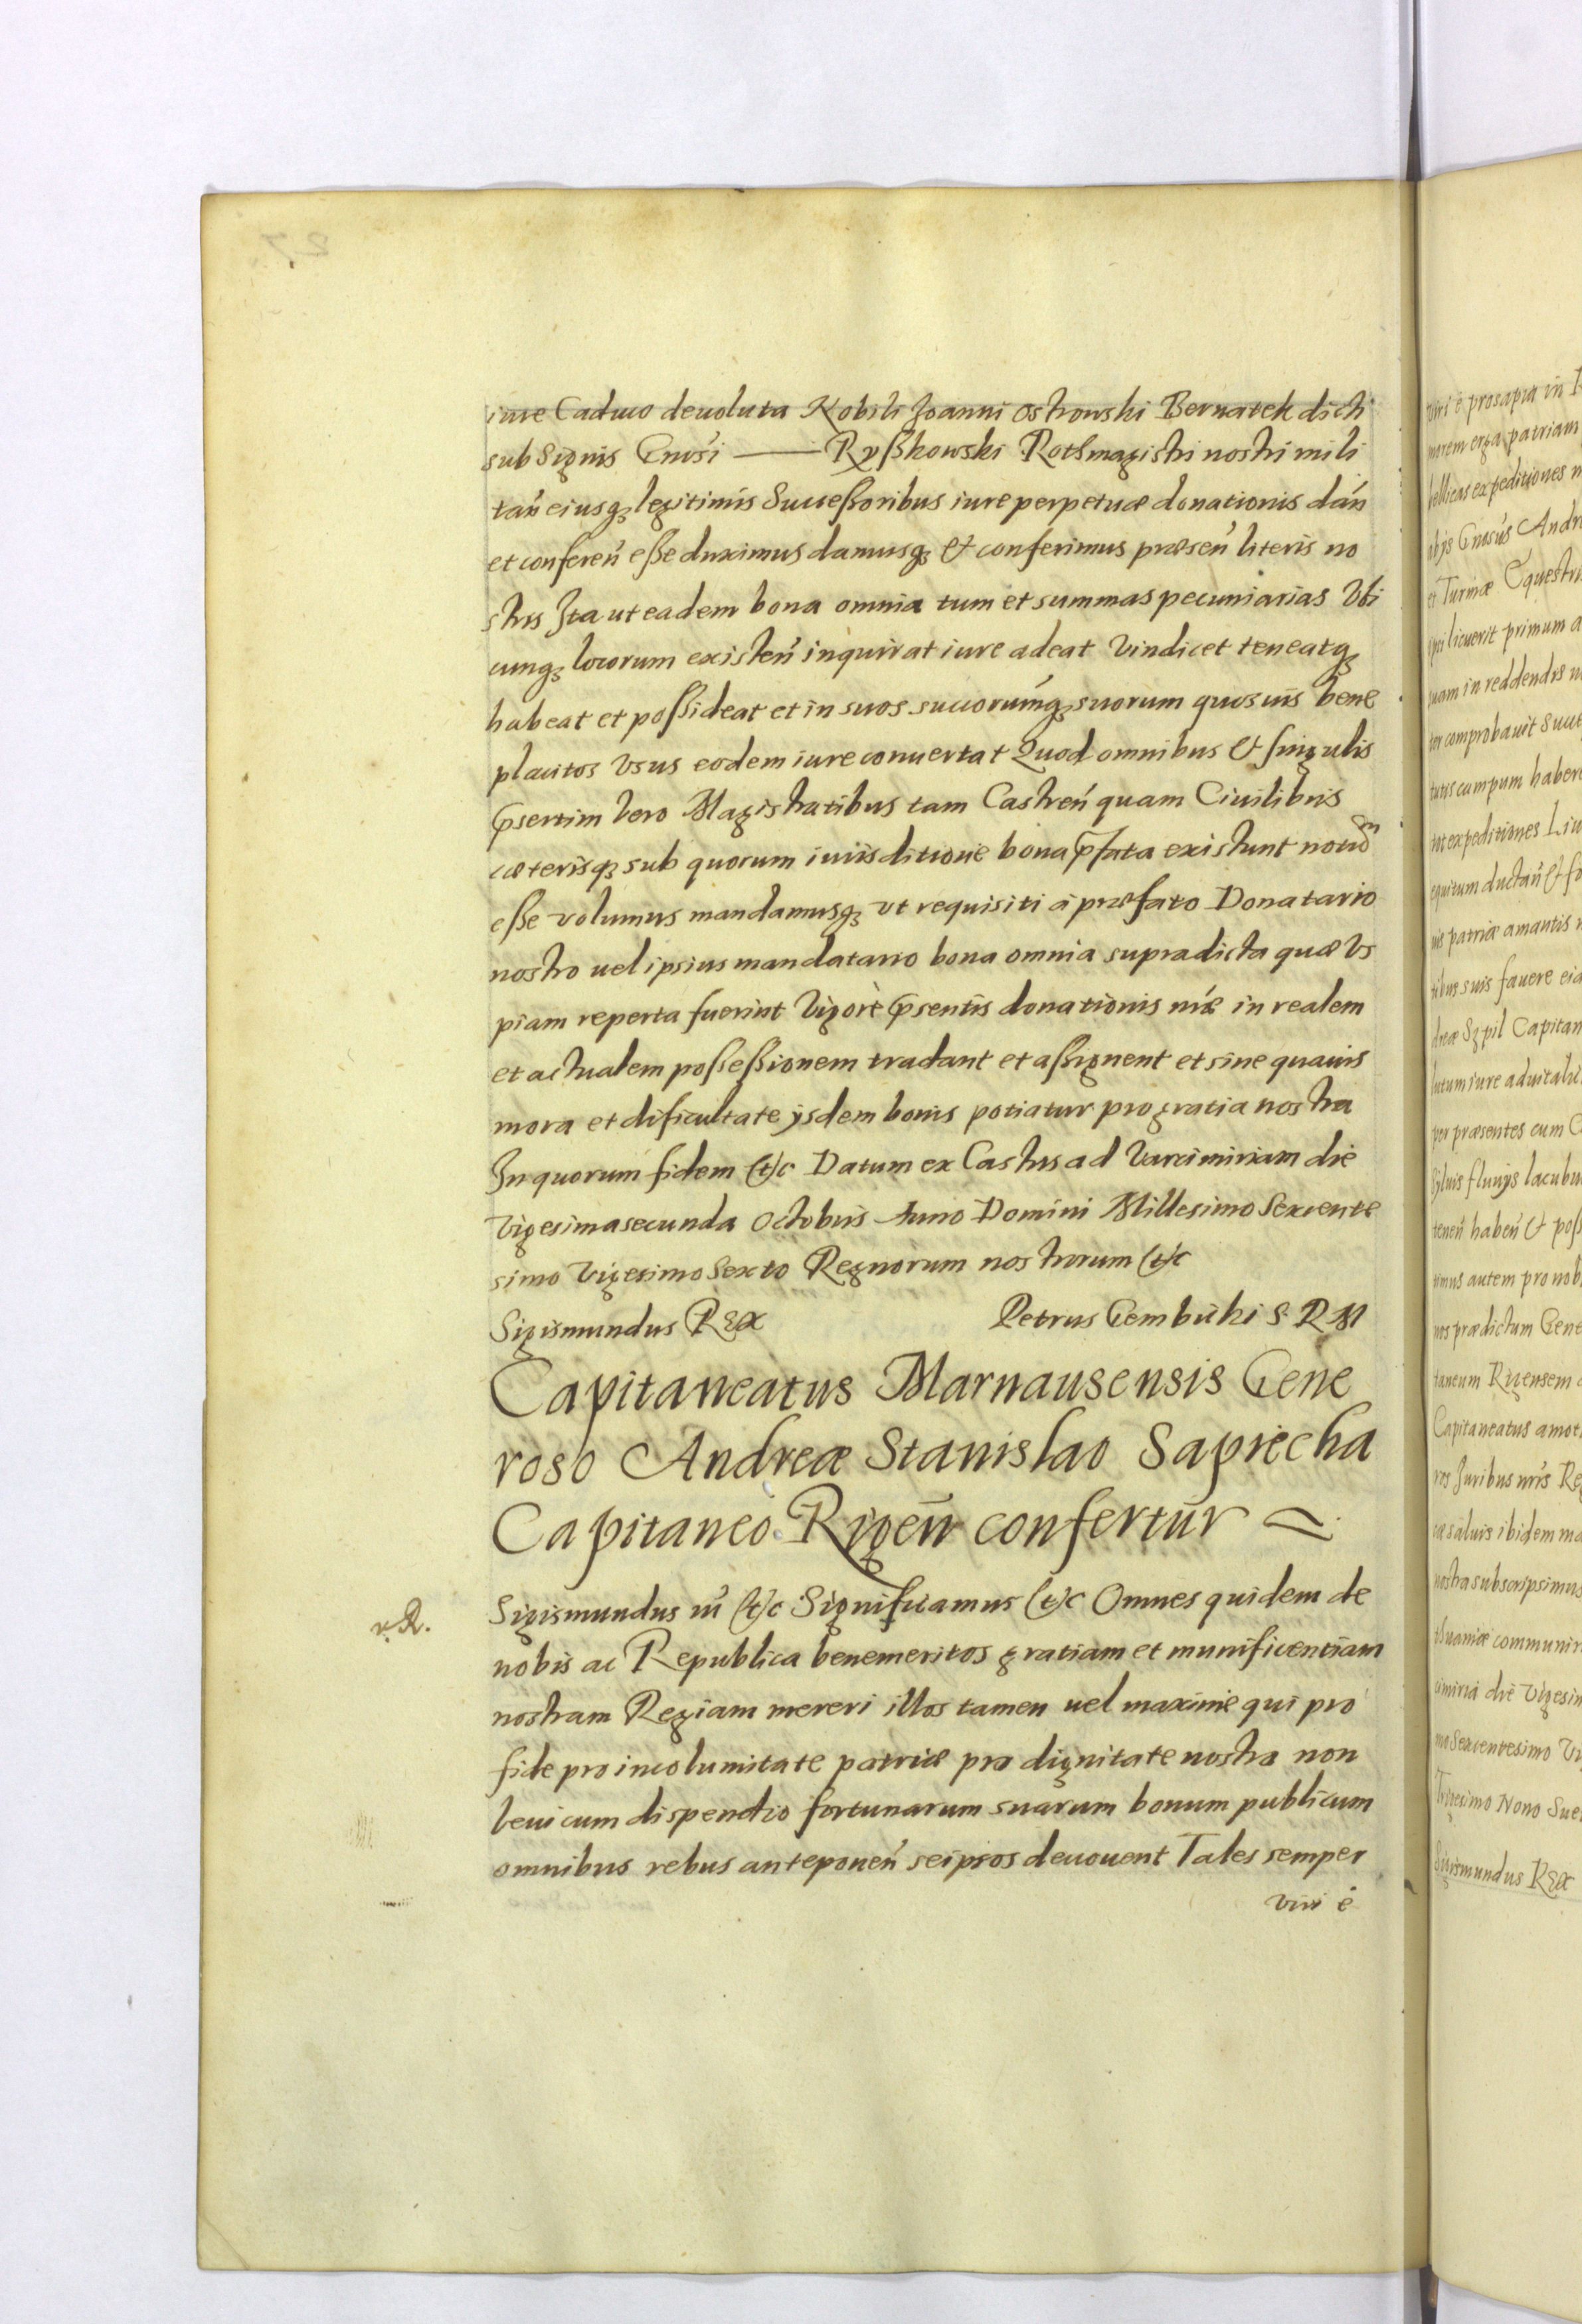 iure Caduco deuoluta Nobili Joanni Ostrowski Bernatek dicti
sub Signis Gnosi — Ryßkowski Rothmagistri nostri mili
tarń eiusq₃ legitimis Successoribus iure perpetuæ donationis dań
et conferen̄ esse duximus damusq₃ & conferimus præsen̄ literis no
stris Ita ut eadem bona omnia tum et summas pecuniarias Vbi
cunq₃ locorum existen̄ inquirat iure adeat Vindicet teneatq₃
habeat et possideat et in suos succorumq₃ suorum quosuis bene
placitos Vsus eodem iure conuertat Quod omnibus & singulis
p̄sertim Vero Magistratibus tam Castren̄ quam Ciuilibus
cæterisq₃ sub quorum iurisditione bona p̄fata existunt notum
esse volumus mandamusq₃ vt requisiti a præfato Donatario
nostro uel ipsius mandatario bona omnia supradicta quæ Vs
piam reperta fuerint Vigore p̄sentis donationis nr̄æ in realem
et actualem possessionem tradant et assignent et sine quauis
mora et dificultate ysdem bonis potiatur pro gratia nostra
In quorum fidem (t)c Datum ex Castris ad Varcimiriam die
Vigesima secunda Octobris Anno Domini Millesimo Sexcente
simo Vigesimo Sexto Regnorum nostrorum (t)c
Sigismundus REX Petrus Gembicki S R M
Capitaneatus Marnausensis Gene
roso Andreæ Stanislao Sapiecha
Capitaneo Rigen̄ confertur
r. R.
Sigismundus iii (t)c Significamus (t)c Omnes quidem de
nobis ac Republica benemeritos gratiam et munificentiam
nostram Regiam mereri illos tamen uel maxime qui pro
fide pro incolumitate patriæ pro dignitate nostra non
leui cum dispendio fortunarum suarum bonum publicum
omnibus rebus anteponen̄ seipsos deuouent Tales semper
viri é
viri é prosapia in
morem erga patriam
bellicas expeditiones
Gnosus Andr
et Turmæ Equestr
licuerit primum a
quam in reddendis
comprobauit Succ
campum haber
expeditiones Liu
equitum ductan̄ &
patriæ amantis
suis fauere
Szpil Capitan
iure aduitali
per præsentes cum
syluis fluuys lacubu
tenen̄ haben̄ & poss
autem pro nob
nos prædictum Gene
taneum Rigensem
Capitaneatus amot
Juribus nris Reg
saluis ibidem
nostra subscripsimus
communir
die Vigesim
Sexcentesimo Vi
Trigesimo Nono Sue
Sigismundus REX